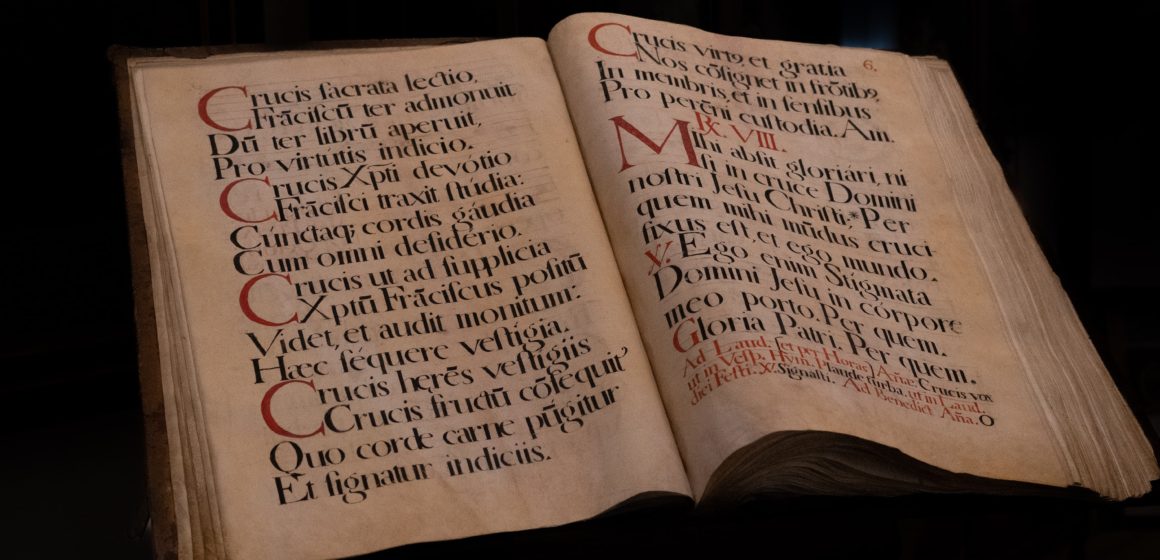 Crucis sacrata lectio,
Frāciscū ter admonuit
Dū ter librū aperuit,
Pro virtutis indicio.
Crucis Xp̄ti devótio
Frācisci traxit studia:
Cúnctaq; cordis gáudia
Cum omni desidério.
Crucis ut ad supplicia
Xptū Frāciscus positū
Videt, et audit monitum:
Hæc séquere vestigia.
Crucis herēs vestigiis
Crucis fructū cōsequit᷑
Quo corde carne pūgitur
Et signatur indiciis.
6.
Crucis virtꝰ, et gratia
Nos cōsignet in frōtibꝰ,
In membris, et in sensibus
Pro perēni custodia. Am.
℟. VIII.
Mihi absit gloriári, ni
si in cruce Domini
nostri Jesu Christi,* Per
quem mihi mūdus cruci
fixus est, et ego mundo.
℣. Ego enim Stigmata
Domini Jesu in córpore
meo porto. Per quem.
Gloria Patri. Per quem.
Ad Laud. (et per Horas) Añæ. Crucis vox
ut in Vesp. Hym. Plaude turba. ut in Laud.
diei Festi. ℣. Signasti. Ad Benedict. Aña. O